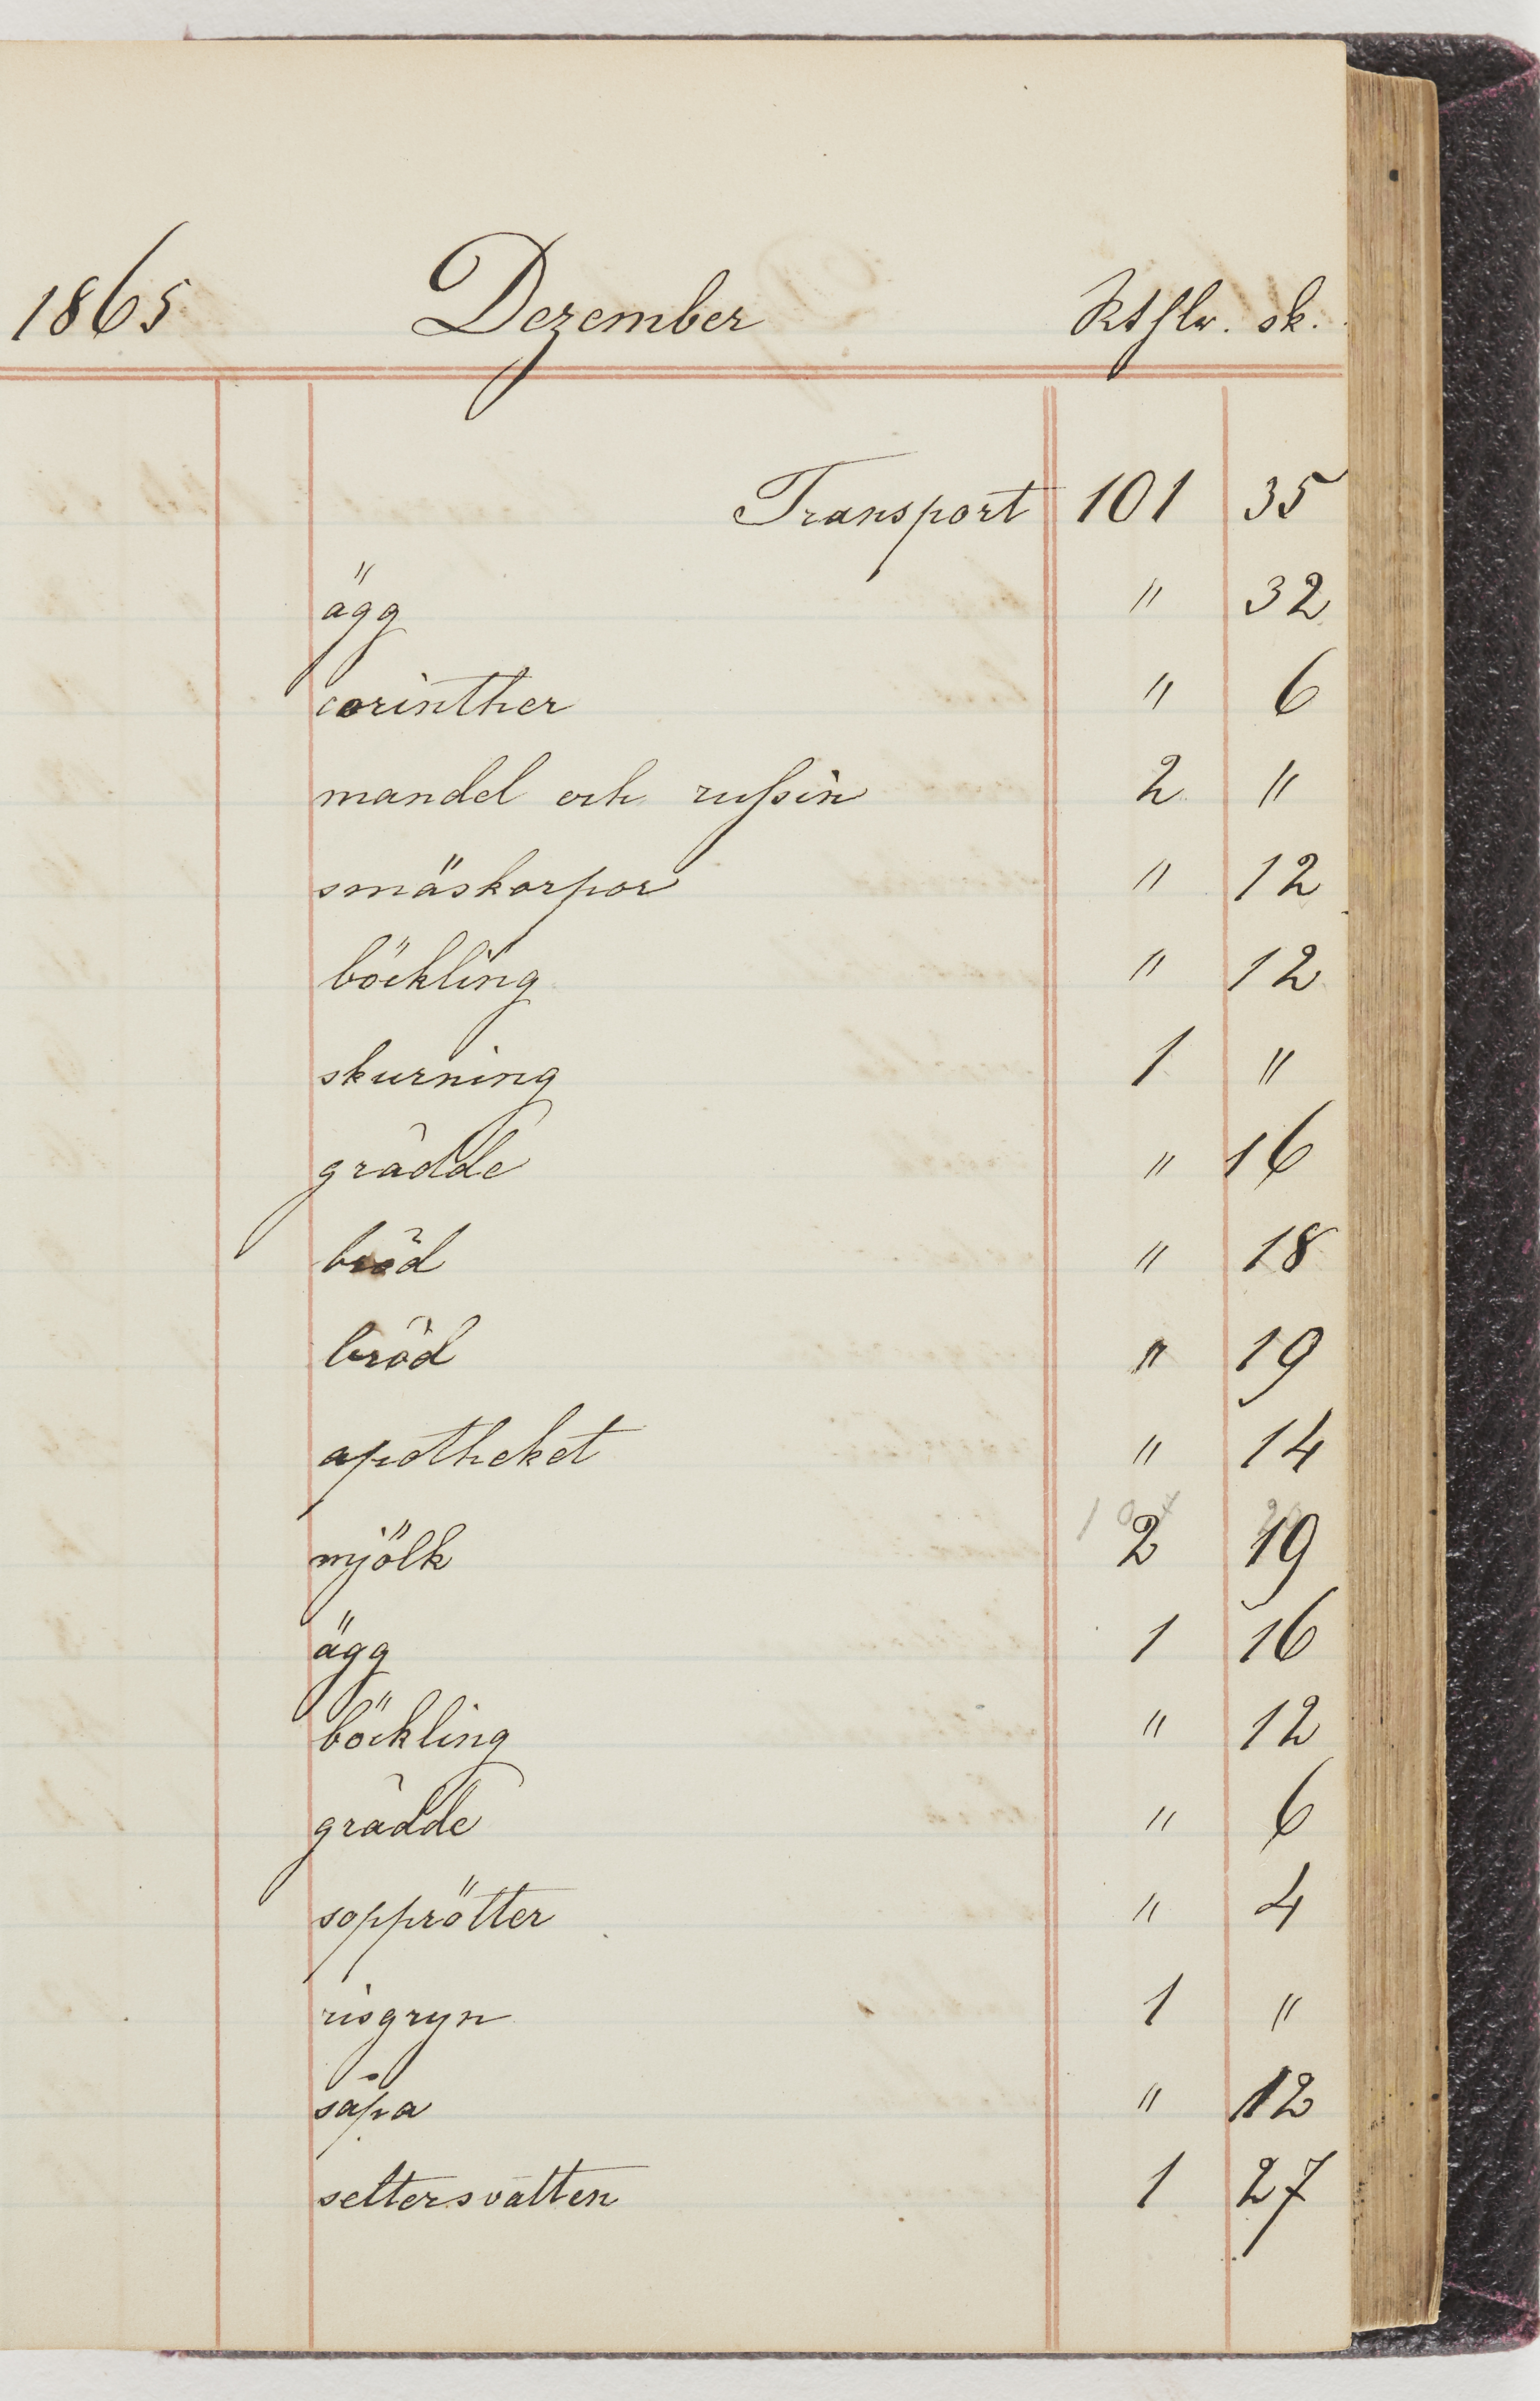 1865 Dezember Rthlr. sk.
Transport 101 35
ägg " 32
corinther " 6
mandel och russin 2 "
småskorpor " 12
böckling " 12
skurning 1 "
grädde " 16
bröd " 18
bröd " 19
apotheket " 14
mjölk 2 19
ägg 1 16
böckling " 12
grädde " 6
sopprötter " 4
risgryn 1 "
såpa " 12
seltersvatten 1 27